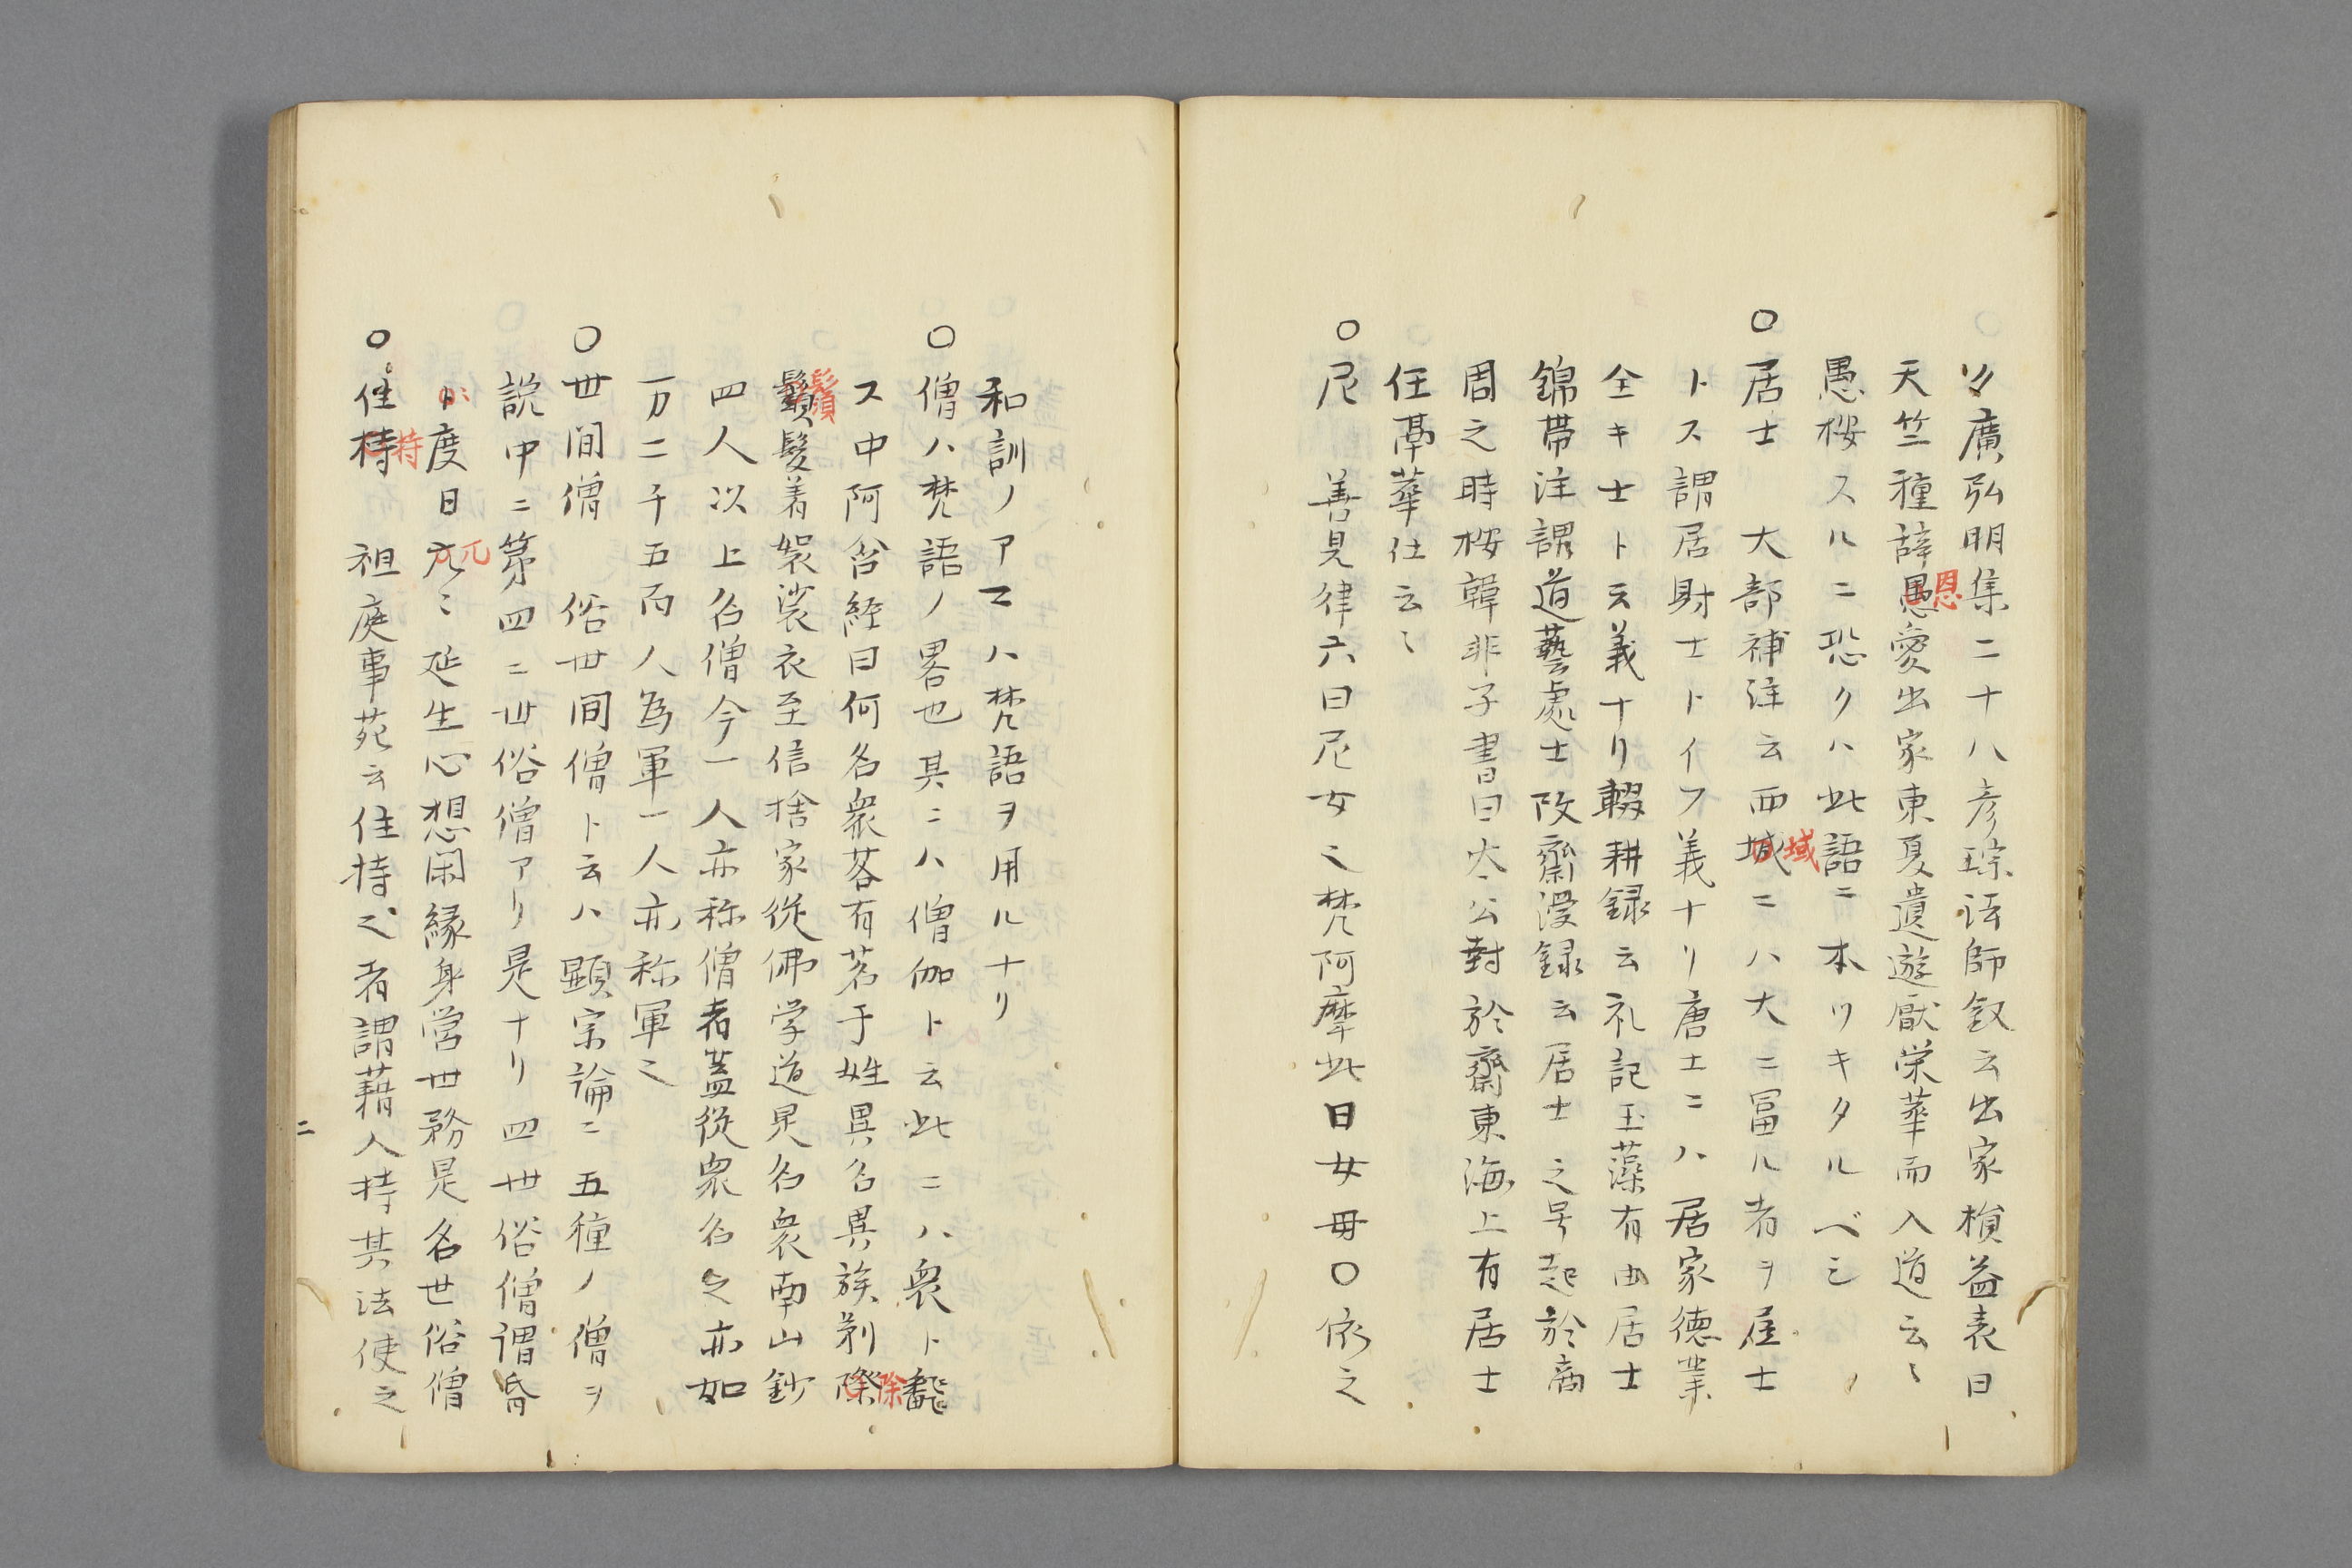 〃廣弘明集二十八彦琮法師釵云出家損益表曰
天竺種辞愚恩愛出家東夏遺遊厭栄華而入道云〻
愚桉スルニ恐クハ此語ニ本ツキタルベシ
〇居士 大部補注云西城域ニハ大ニ冨ル者ヲ居士
トス謂居財士トイフ義ナリ唐土ニハ居家徳業
全キ士ト云義ナリ輟耕録云礼記玉藻有曲居士
錦帯注謂道藝處士攺齋漫録云居士之号起於商
周之時桉韓非子書曰太公封於齋東海上有居士
任矞華仕云〻
〇尼 善見律六曰尼女之梵阿摩此曰女毋〇依之
和訓ノアマハ梵語ヲ用ルナリ
〇僧ハ梵語ノ畧也具ニハ僧伽ト云此ニハ衆ト飜
ス中阿含経曰何名衆若有若干姓異名異族剃除
鬚髮着袈裟衣至信捨家從佛学道是名衆南山鈔
四人以上名僧今一人亦称僧者蓋從衆名之亦如
一万二千五百人為軍一人亦称軍之
〇世間僧 俗世間僧ト云ハ顕宗論ニ五種ノ僧ヲ
説中ニ第四ニ世俗僧アリ是ナリ四世俗僧謂昏
度日兀〻延生心想閑縁身営世務是名世俗僧
〇住持 祖庭事苑云住持之者謂藉人持其法使之
二